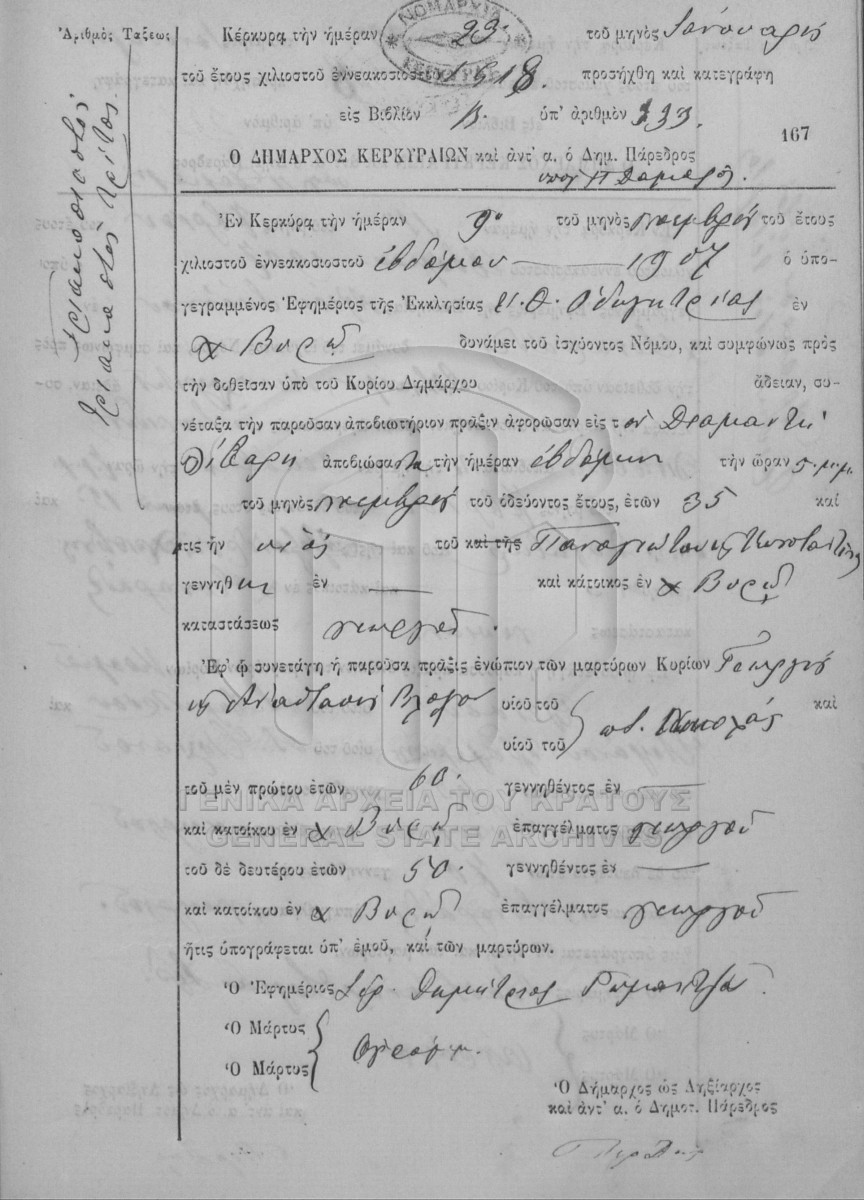 Ἀριθμὸς Τάξεως
τριακοσιοστὸς
τριακοστὸς τρίτος
ΝΟΜΑΡΧΙΑ
ΚΕΡΚΥΡΑΣ
Κέρκυρα τὴν ἡμέραν 23 τοῦ μηνὸς Ἰανουαρίου
τοῦ ἔτους χιλιοστοῦ ἐννεακοσιοστοῦ 1918. προσήχθη καὶ κατεγράφη
εἰς Βιβλίον Β. ὑπ' ἀριθμὸν 333.
167
Ο ΔΗΜΑΡΧΟΣ ΚΕΡΚΥΡΑΙΩΝ καὶ ἀντ' α. ὁ Δημ. Πάρεδρος
Ἐν Κερκύρᾳ τὴν ἡμέραν 9 τοῦ μηνὸς τοῦ ἔτους
χιλιοστοῦ ἐννεακοσιοστοῦ ἑβδόμου 1907 ὁ ὑπο-
γεγραμμένος Ἐφημέριος τῆς Ἐκκλησίας Ὑ. Θ. Ὁδηγητρίας ἐν
χ Βυρῷ δυνάμει τοῦ ἰσχύοντος Νόμου, καὶ συμφώνως πρὸς
τὴν δοθεῖσαν ὑπὸ τοῦ Κυρίου Δημάρχου ἄδειαν, συ-
νέταξα τὴν παροῦσαν ἀποβιωτήριον πρᾶξιν ἀφορῶσαν εἰς τὸν Διαμαντῆ
ἀποβιώσαντα τὴν ἡμέραν ἑβδόμην τὴν ὥραν 5 μ.μ.
τοῦ μηνὸς τοῦ ὁδεύοντος ἔτους, ἐτῶν 35 καὶ
τις ἦν υἱὸς τοῦ καὶ τῆς Παναγιώτου
γεννηθεὶς ἐν — καὶ κάτοικος ἐν χ Βυρῷ
καταστάσεως γεωργοῦ.
Ἐφ' ᾧ συνετάγη ἡ παροῦσα πρᾶξις ἐνώπιον τῶν μαρτύρων Κυρίων Γεωργίου
κ Ἀναστασίου υἱοῦ τοῦ καὶ
υἱοῦ τοῦ
τοῦ μὲν πρώτου ἐτῶν 60. γεννηθέντος ἐν —
καὶ κατοίκου ἐν χ Βυρῷ ἐπαγγέλματος γεωργοῦ
τοῦ δὲ δευτέρου ἐτῶν 50. γεννηθέντος ἐν —
καὶ κατοίκου ἐν χ Βυρῷ ἐπαγγέλματος γεωργοῦ
ἥτις ὑπογράφεται ὑπ' ἐμοῦ, καὶ τῶν μαρτύρων.
Ὁ Ἐφημέριος Δημήτριος
Ὁ Μάρτυς
Ὁ Μάρτυς
Ὁ Δήμαρχος ὡς Ληξίαρχος
καὶ ἀντ' α. ὁ Δημοτ. Πάρεδρος
ΓΕΝΙΚΑ ΑΡΧΕΙΑ ΤΟΥ ΚΡΑΤΟΥΣ
GENERAL STATE ARCHIVES